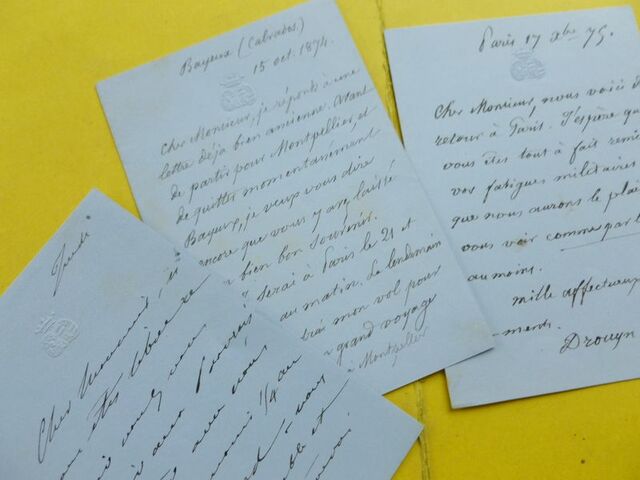 Bayeux (Calvados)
15 oct. 1874.
Cher Monsieur, je réponds à une
lettre déja bien ancienne. Avant
de partir pour Montpellier, et
de quitter momentanément
Bayeux, je veux vous dire
encore que vous y avez laissé
bien bon souvenir.
serai à Paris le 21 et
au matin. Le lendemain
mon vol pour
grand voyage
à Montpellier
Paris 17 Xbre 75.
Cher Monsieur, nous voici de
retour à Paris. J'espère que
vous êtes tout à fait remis
vos fatigues militaires
que nous aurons le plai
vous voir comme par
au moins.
mille affectueux
ments.
Drouyn
Cher Monsieur, si
vous êtes libre ce
voulez vous
1/4 au
vous
et